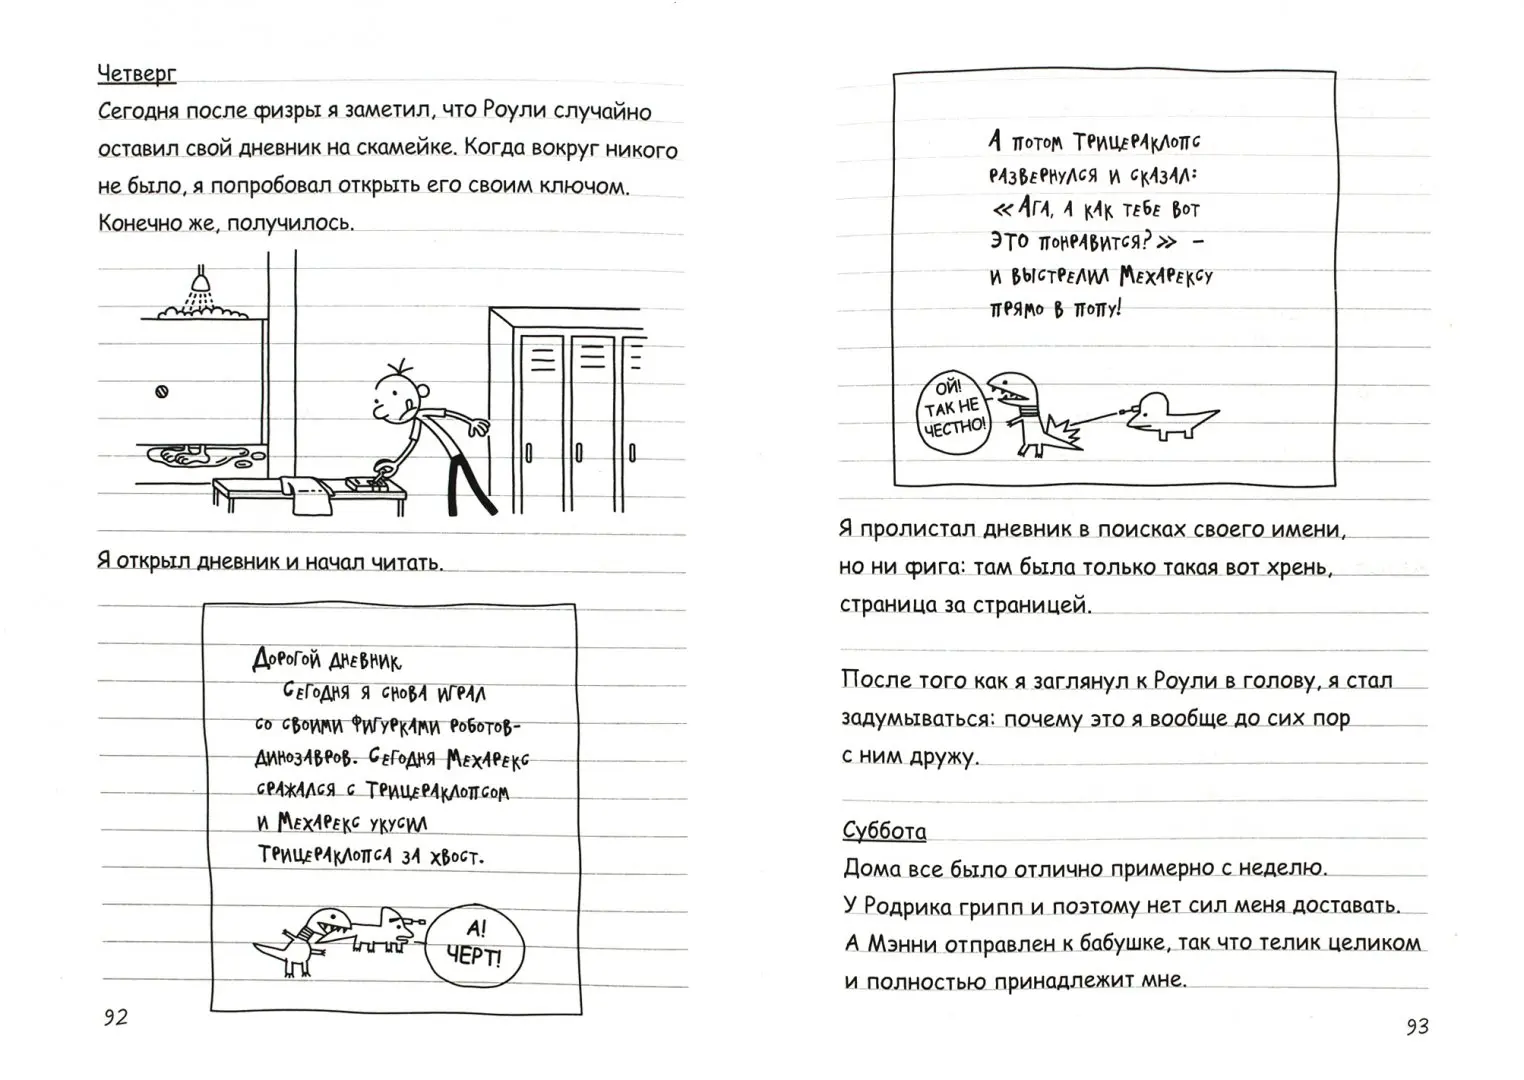 Четверг
Сегодня после физры я заметил, что Роули случайно
оставил свой дневник на скамейке. Когда вокруг никого
не было, я попробовал открыть его своим ключом.
Конечно же, получилось.
Я открыл дневник и начал читать.
Дорогой дневник
Сегодня я снова играл
со своими фигурками роботов-
динозавров. Сегодня Мехарекс
сражался с Трицераклопсом
и Мехарекс укусил
Трицераклопса за хвост.
А!
ЧЕРТ!
92
А потом Трицераклопс
развернулся и сказал:
«Ага, а как тебе вот
это понравится?» –
и выстрелил Мехарексу
прямо в попу!
ОЙ!
ТАК НЕ
ЧЕСТНО!
Я пролистал дневник в поисках своего имени,
но ни фига: там была только такая вот хрень,
страница за страницей.
После того как я заглянул к Роули в голову, я стал
задумываться: почему это я вообще до сих пор
с ним дружу.
Суббота
Дома все было отлично примерно с неделю.
У Родрика грипп и поэтому нет сил меня доставать.
А Мэнни отправлен к бабушке, так что телик целиком
и полностью принадлежит мне.
93